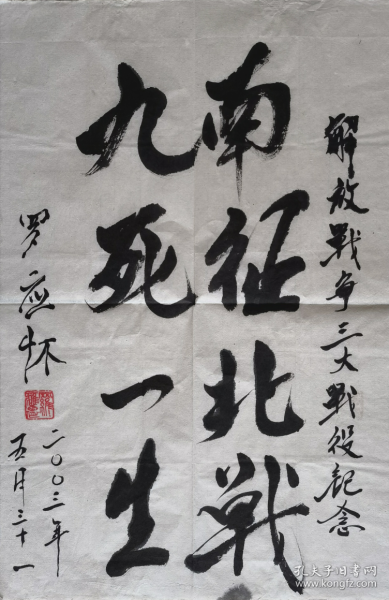 解放戰争三大戰役纪念
南征北戰
九死一生
罗应怀
二〇〇三年
五月三十一
孔夫子旧书网